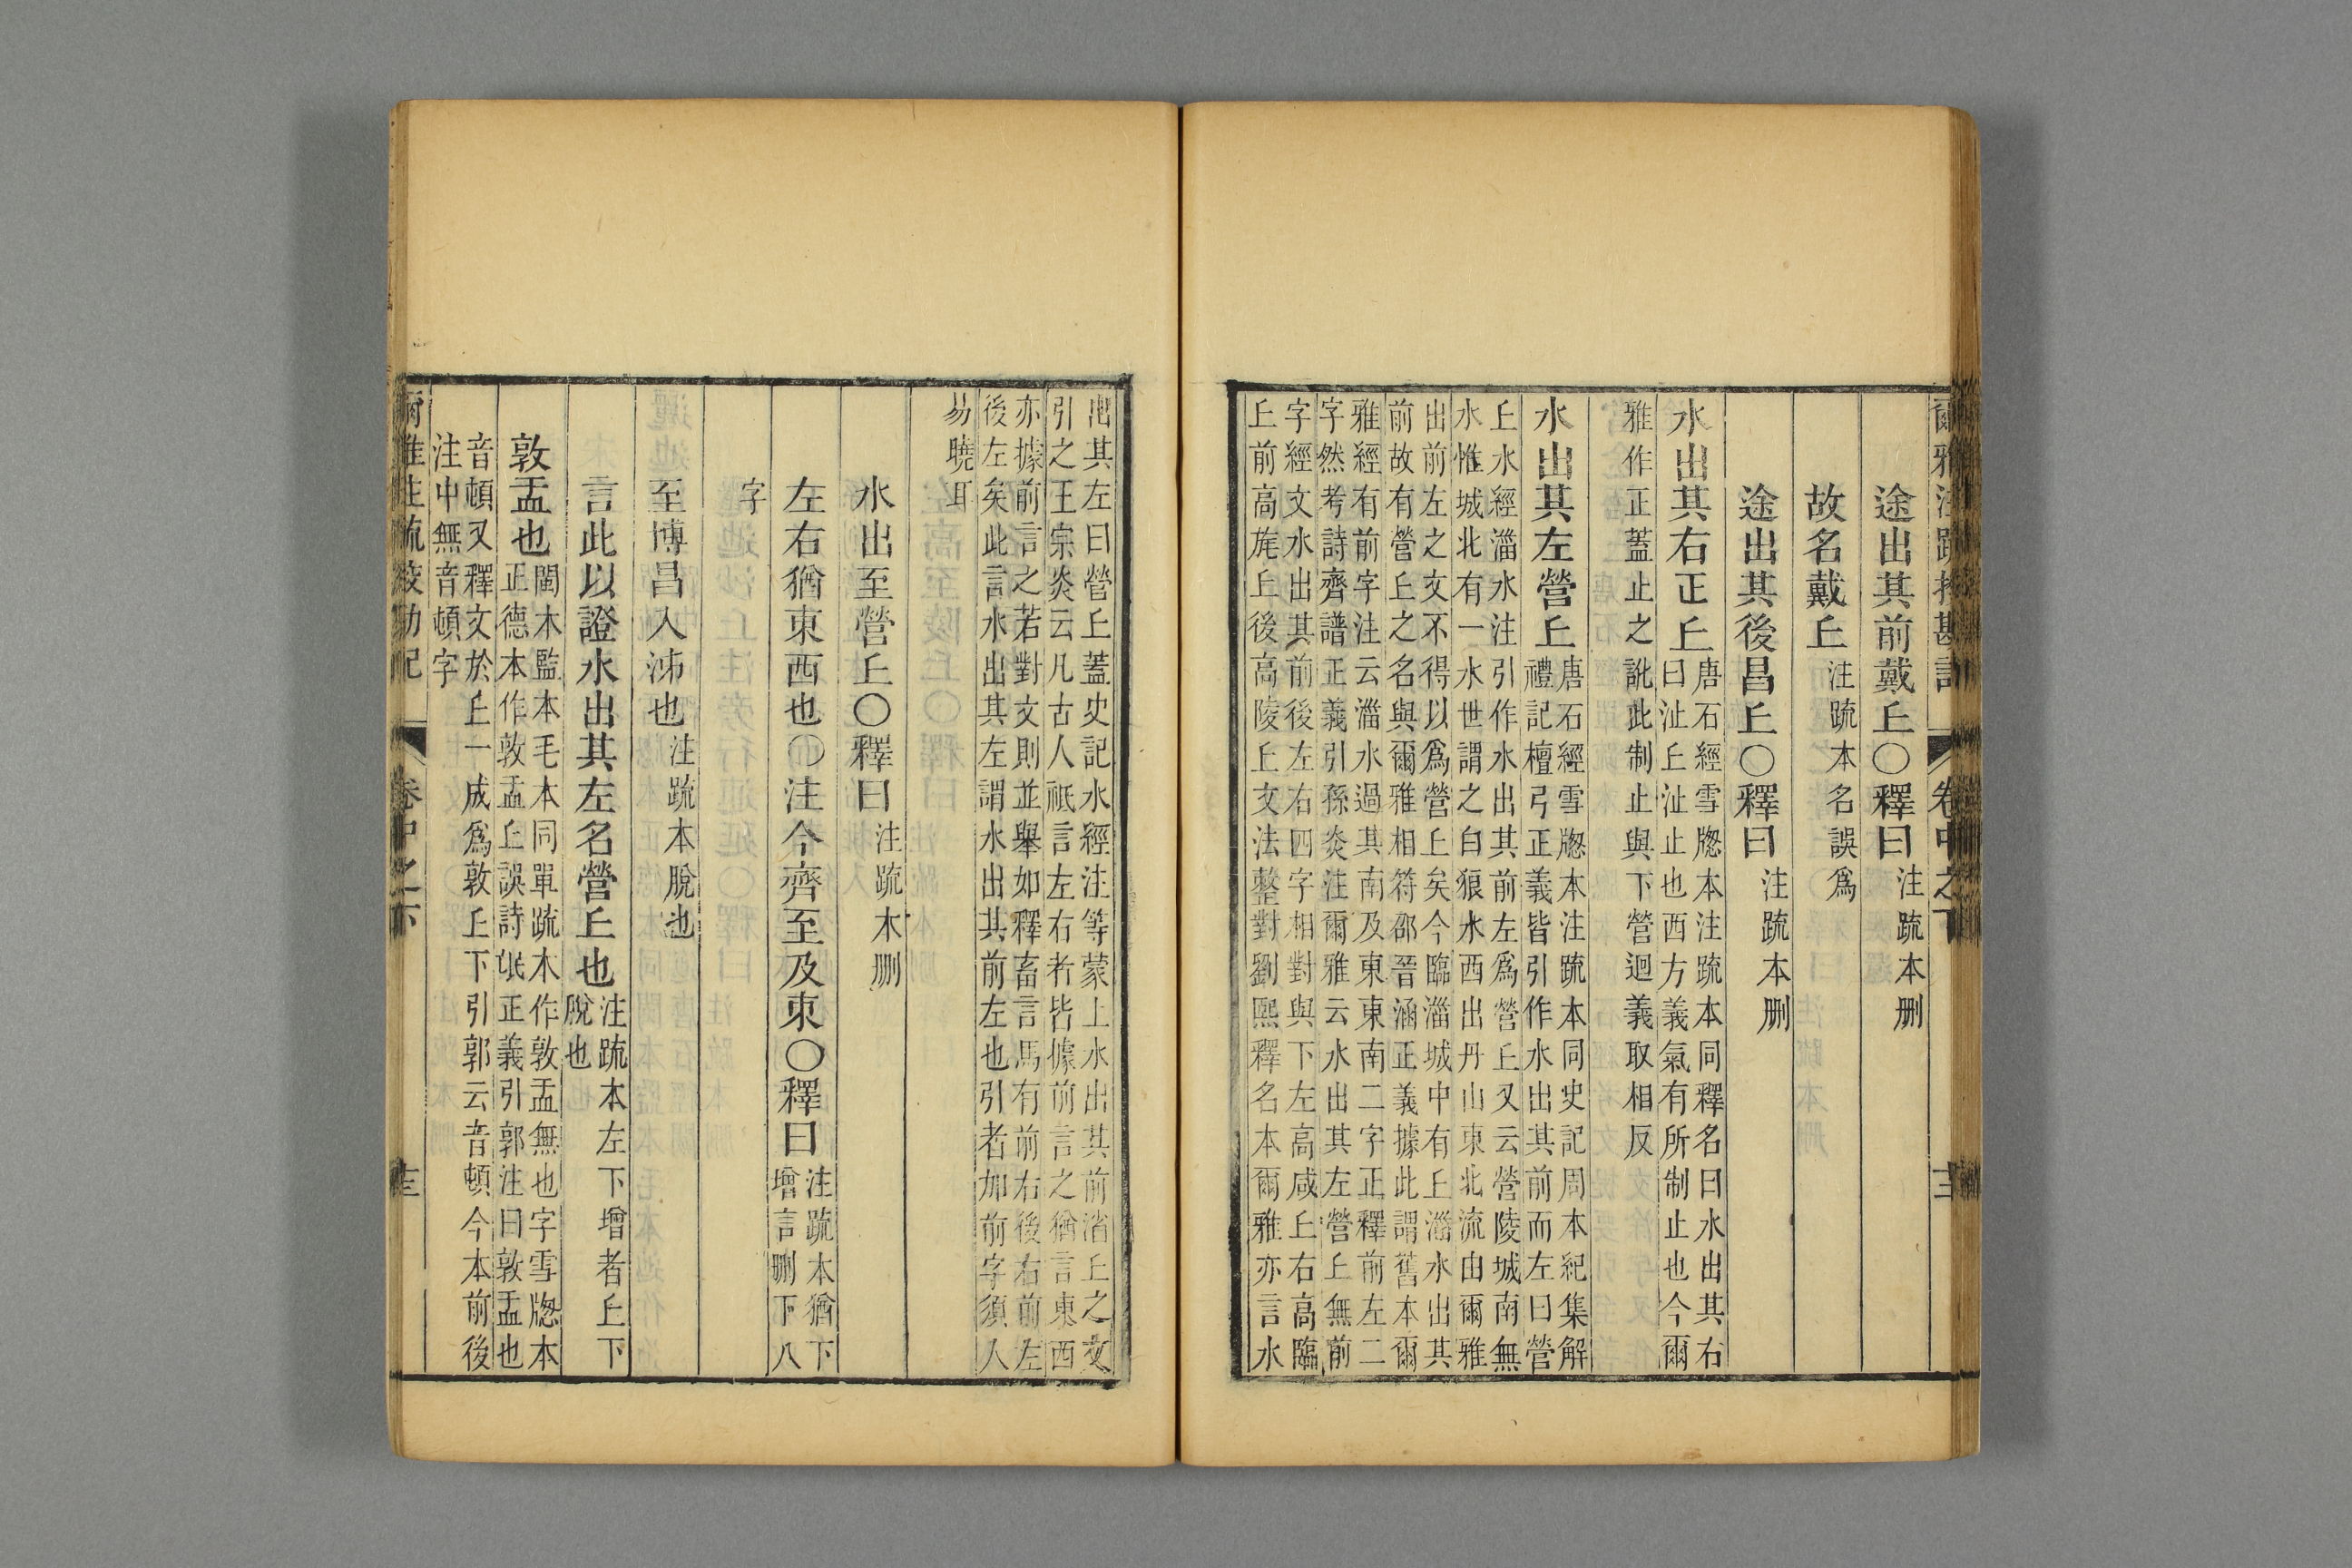 爾雅注疏挍勘記 卷中之下
途出其前戴丘〇釋曰注疏本刪
故名戴丘注疏本名誤爲
途出其後昌丘〇釋曰注疏本刪
水出其右正丘唐石經雪牎本注疏本同釋名曰水出其右
曰沚丘沚止也西方義氣有所制止也今爾
雅作正蓋止之訛此制止與下營迴義取相反
水出其左營丘唐石經雪牎本注疏本同史記周本紀集解
禮記檀弓正義皆引作水出其前而左曰營
丘水經淄水注引作水出其前左爲營丘又云營陵城南無
水惟城北有一水世謂之白狼水西出丹山東北流由爾雅
出前左之文不得以爲營丘矣今臨淄城中有丘淄水出其
前故有營丘之名與爾雅相符邵晉涵正義據此謂舊本爾
雅經有前字注云淄水過其南及東東南二字正釋前左二
字然考詩齊譜正義引孫炎注爾雅云水出其左營丘無前
字經文水出其前後左右四字相對與下左高咸丘右高臨
丘前高旄丘後高陵丘文法整對劉熙釋名本爾雅亦言水
出其左曰營丘蓋史記水經注等蒙上水出其前渻丘之文
引之王宗炎云凡古人祗言左右者皆據前言之猶言東西
亦據前言之若對文則並舉如釋畜言馬有前右後右前左
後左矣此言水出其左謂水出其前左也引者加前字須人
易曉耳
水出至營丘〇釋曰注疏本刪
左右猶東西也〇注今齊至及東〇釋曰注疏本猶下
增言刪下八
字
至博昌入沛也注疏本脫也
言此以證水出其左名營丘也注疏本左下增者丘下
脫也
敦盂也閩本監本毛本同單疏本作敦盂無也字雪牎本
正德本作敦孟丘誤詩氓正義引郭注曰敦盂也
音頓又釋文於丘一成爲敦丘下引郭云音頓今本前後
注中無音頓字
爾雅注疏挍勘記 卷中之下